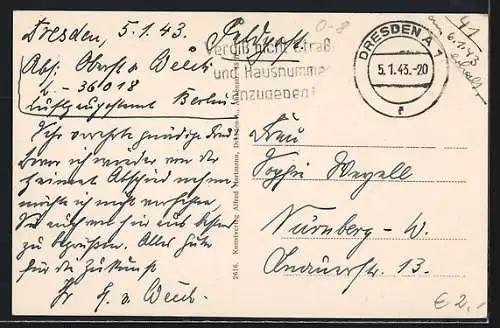 Dresden, 5.1.43. Feldpost
Abs: Oberst v.
L - 36018
Luftgaupostamt Berlin
Sehr verehrte gnädige Frau
Bevor ich wieder von der
Heimat Abschied nehme
möchte ich nicht versäumen,
Sie auch von hier aus bestens
zu begrüßen. Alles Gute
für die Zukunft
Ihr
2616. Kunstverlag Alfred Hartmann, Dresden
Vergiß nicht Straße
und Hausnummer
anzugeben!
DRESDEN A 1
5.1.43.-20
r
41
6.1.43
Frau
Sophie
Nürnberg - W.
13.
€ 2.-